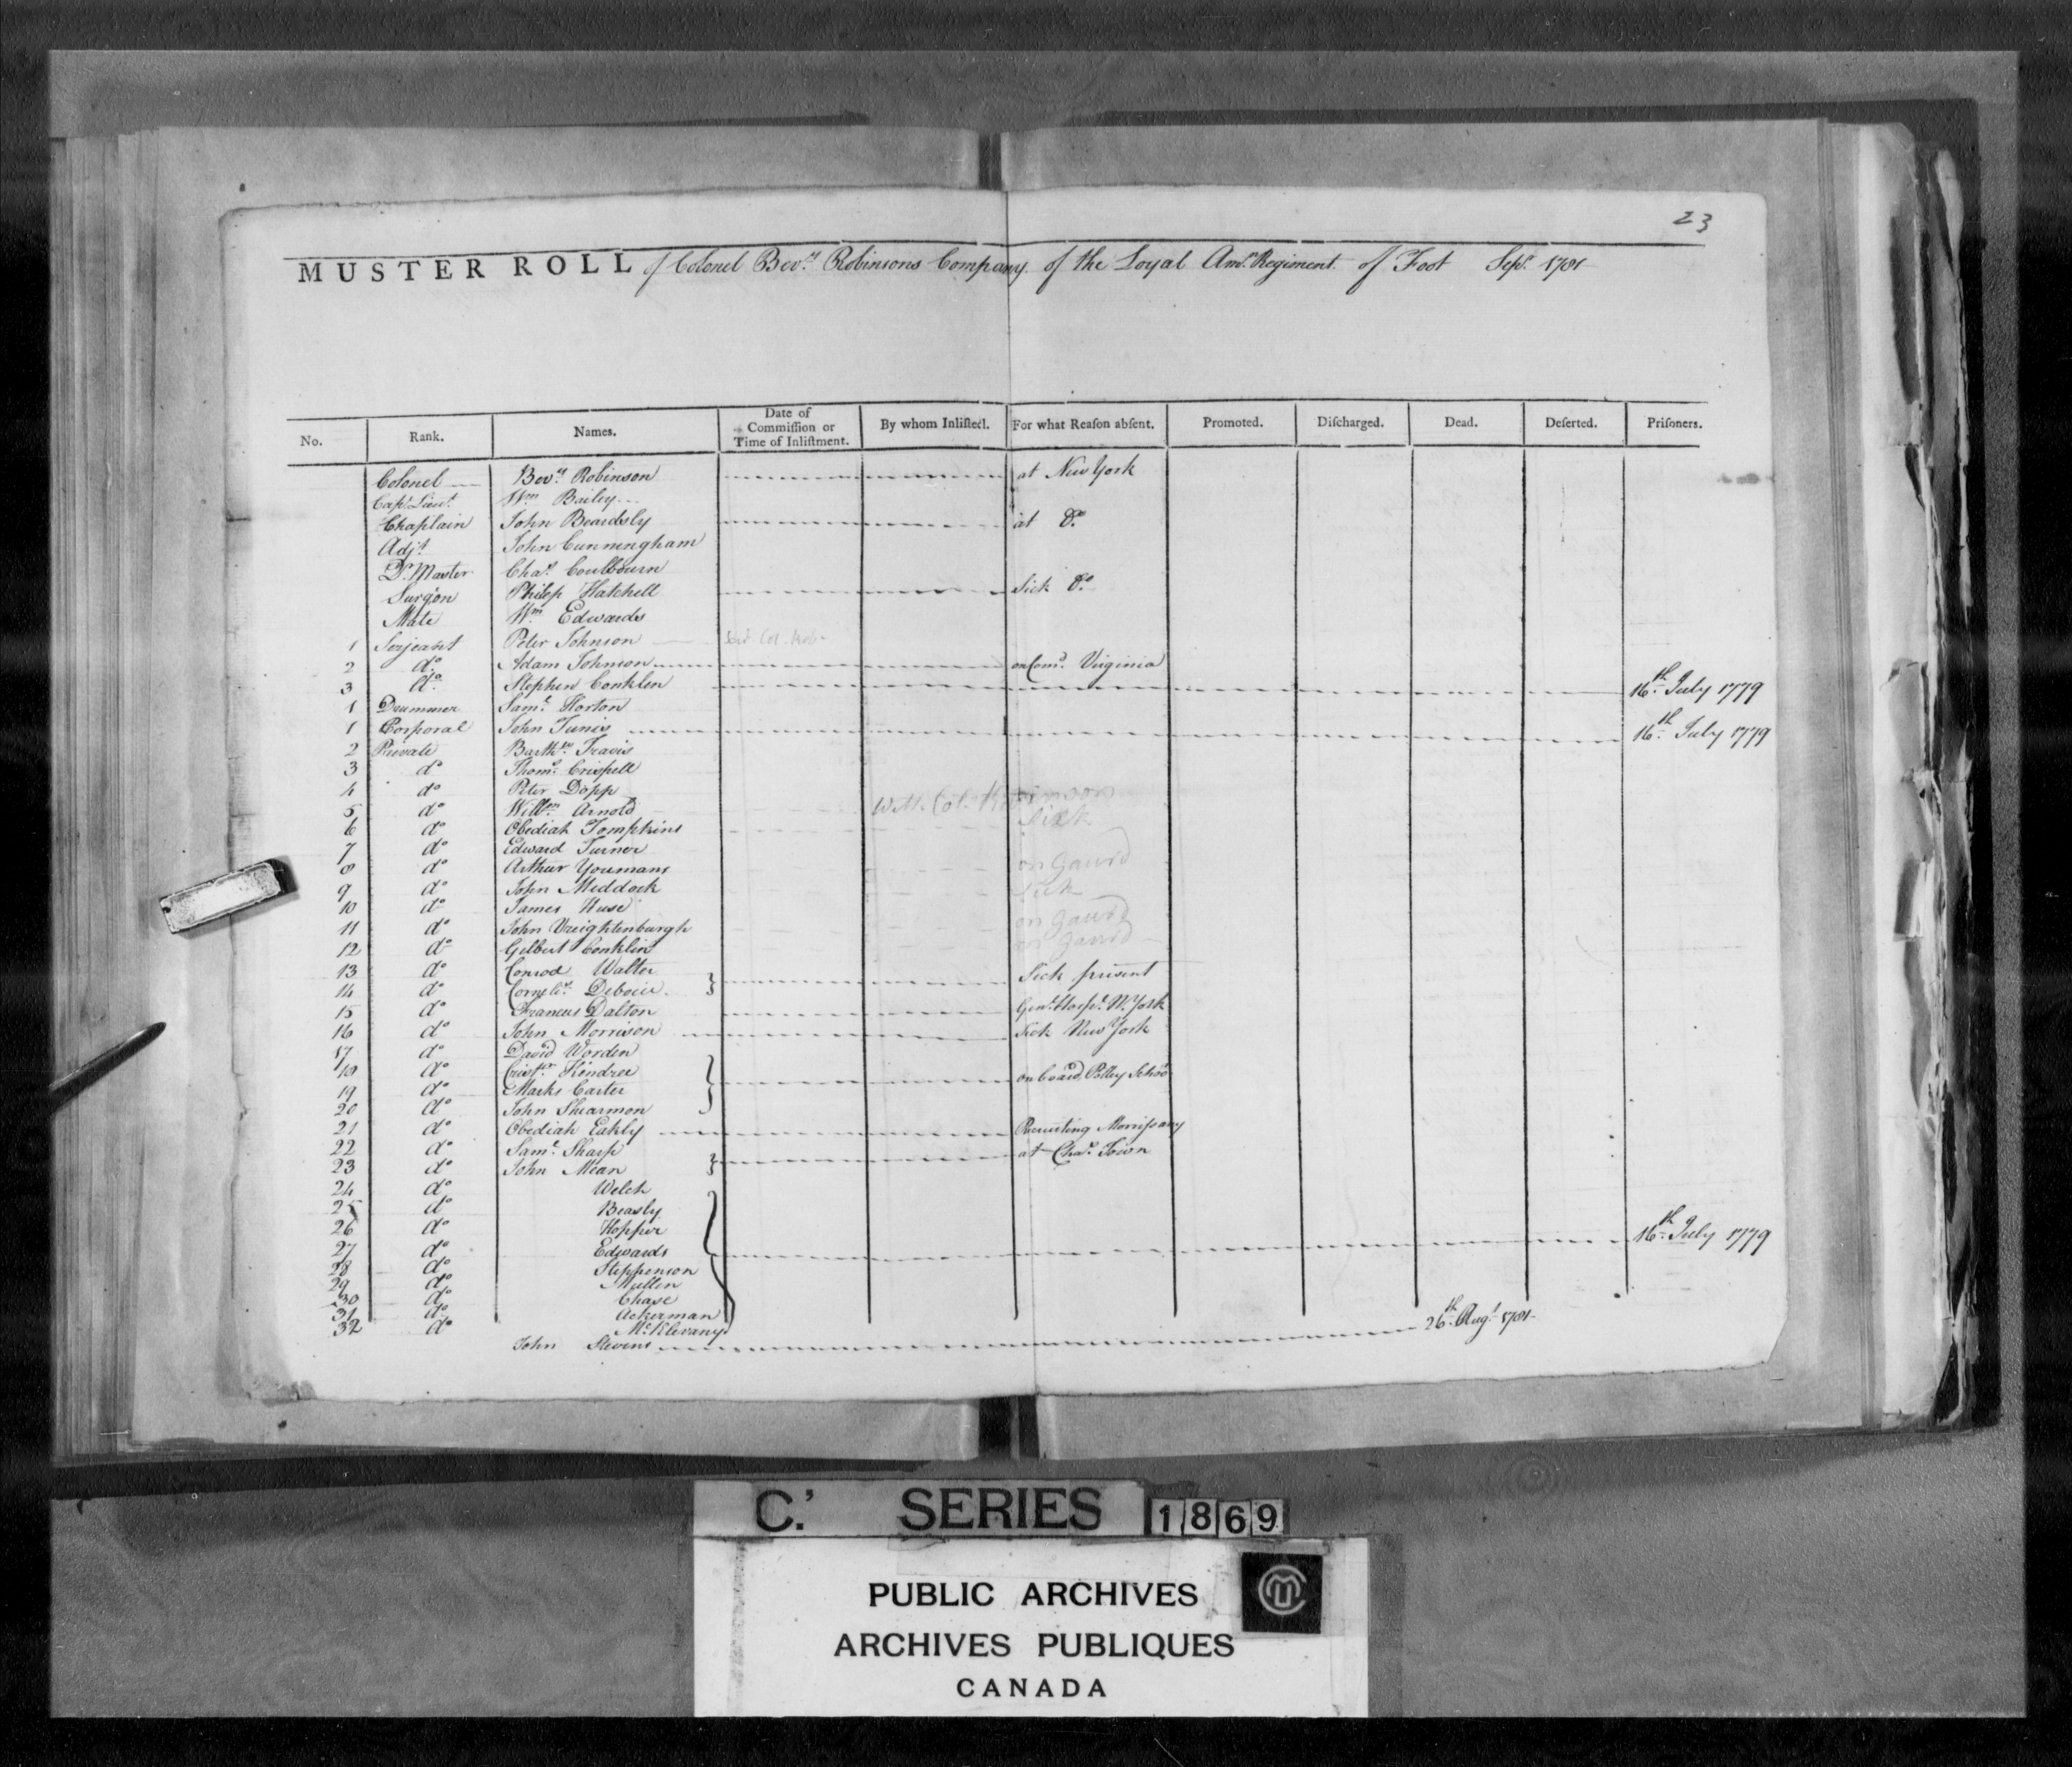 23
MUSTER ROLL of Colonel Bev.y Robinsons Company of the Loyal Am.n Regiment of Foot Sep.r 1781
No. Rank. Names. Date of Commission or Time of Inlistment. By whom Inlisted. For what Reason absent. Promoted. Discharged. Dead. Deserted. Prisoners.
Colonel Bev.y Robinson at New York
Cap.t Lieu.t W.m Bailey
Chaplain John Beardsly at D.o
Adj.t John Cunningham
Q.r Master Cha.s Coulbourn
Surgon Philip Hatchell Sick D.o
Mate W.m Edwards
1 Serjeant Peter Johnson
2 d.o Adam Johnson on Com.d Virginia
3 d.o Stephen Conklen 16.th July 1779
1 Drummer Sam.l Horton
1 Corporal John Tunis 16.th July 1779
2 Private Barth.w Travis
3 d.o Thom.s Crispell
4 d.o Peter Dopp
5 d.o Will.m Arnold With Col. Robinson
6 d.o Obediah Tompkins Sick
7 d.o Edward Turner
8 d.o Arthur Youmans on Gaurd
9 d.o John Middock Sick
10 d.o James Huse on Gaurd
11 d.o John Vreightenburgh on Gaurd
12 d.o Gilbert Conklin
13 d.o Conrod Walter Sick present
14 d.o Corneli.s
15 d.o Francus Dalton Gen.l Hosp.l N. York
16 d.o John Morrison Sick New York
17 d.o David Worden
18 d.o Crist.r Kendree on board Polley Schoo.r
19 d.o Marks Carter
20 d.o John Shearmon
21 d.o Obediah Eakly Recruiting Morrisany
22 d.o Sam.l Sharp at Cha.s Town
23 d.o John Mean
24 d.o Welch
25 d.o Beasly
26 d.o Hopper 16.th July 1779
27 d.o Edwards
28 d.o Stephenson
29 d.o Mullen
30 d.o Chase
31 d.o Ackerman
32 d.o McKlevany
John Stevens 26.th Aug.t 1781
C.' SERIES 1869
PUBLIC ARCHIVES
ARCHIVES PUBLIQUES
CANADA